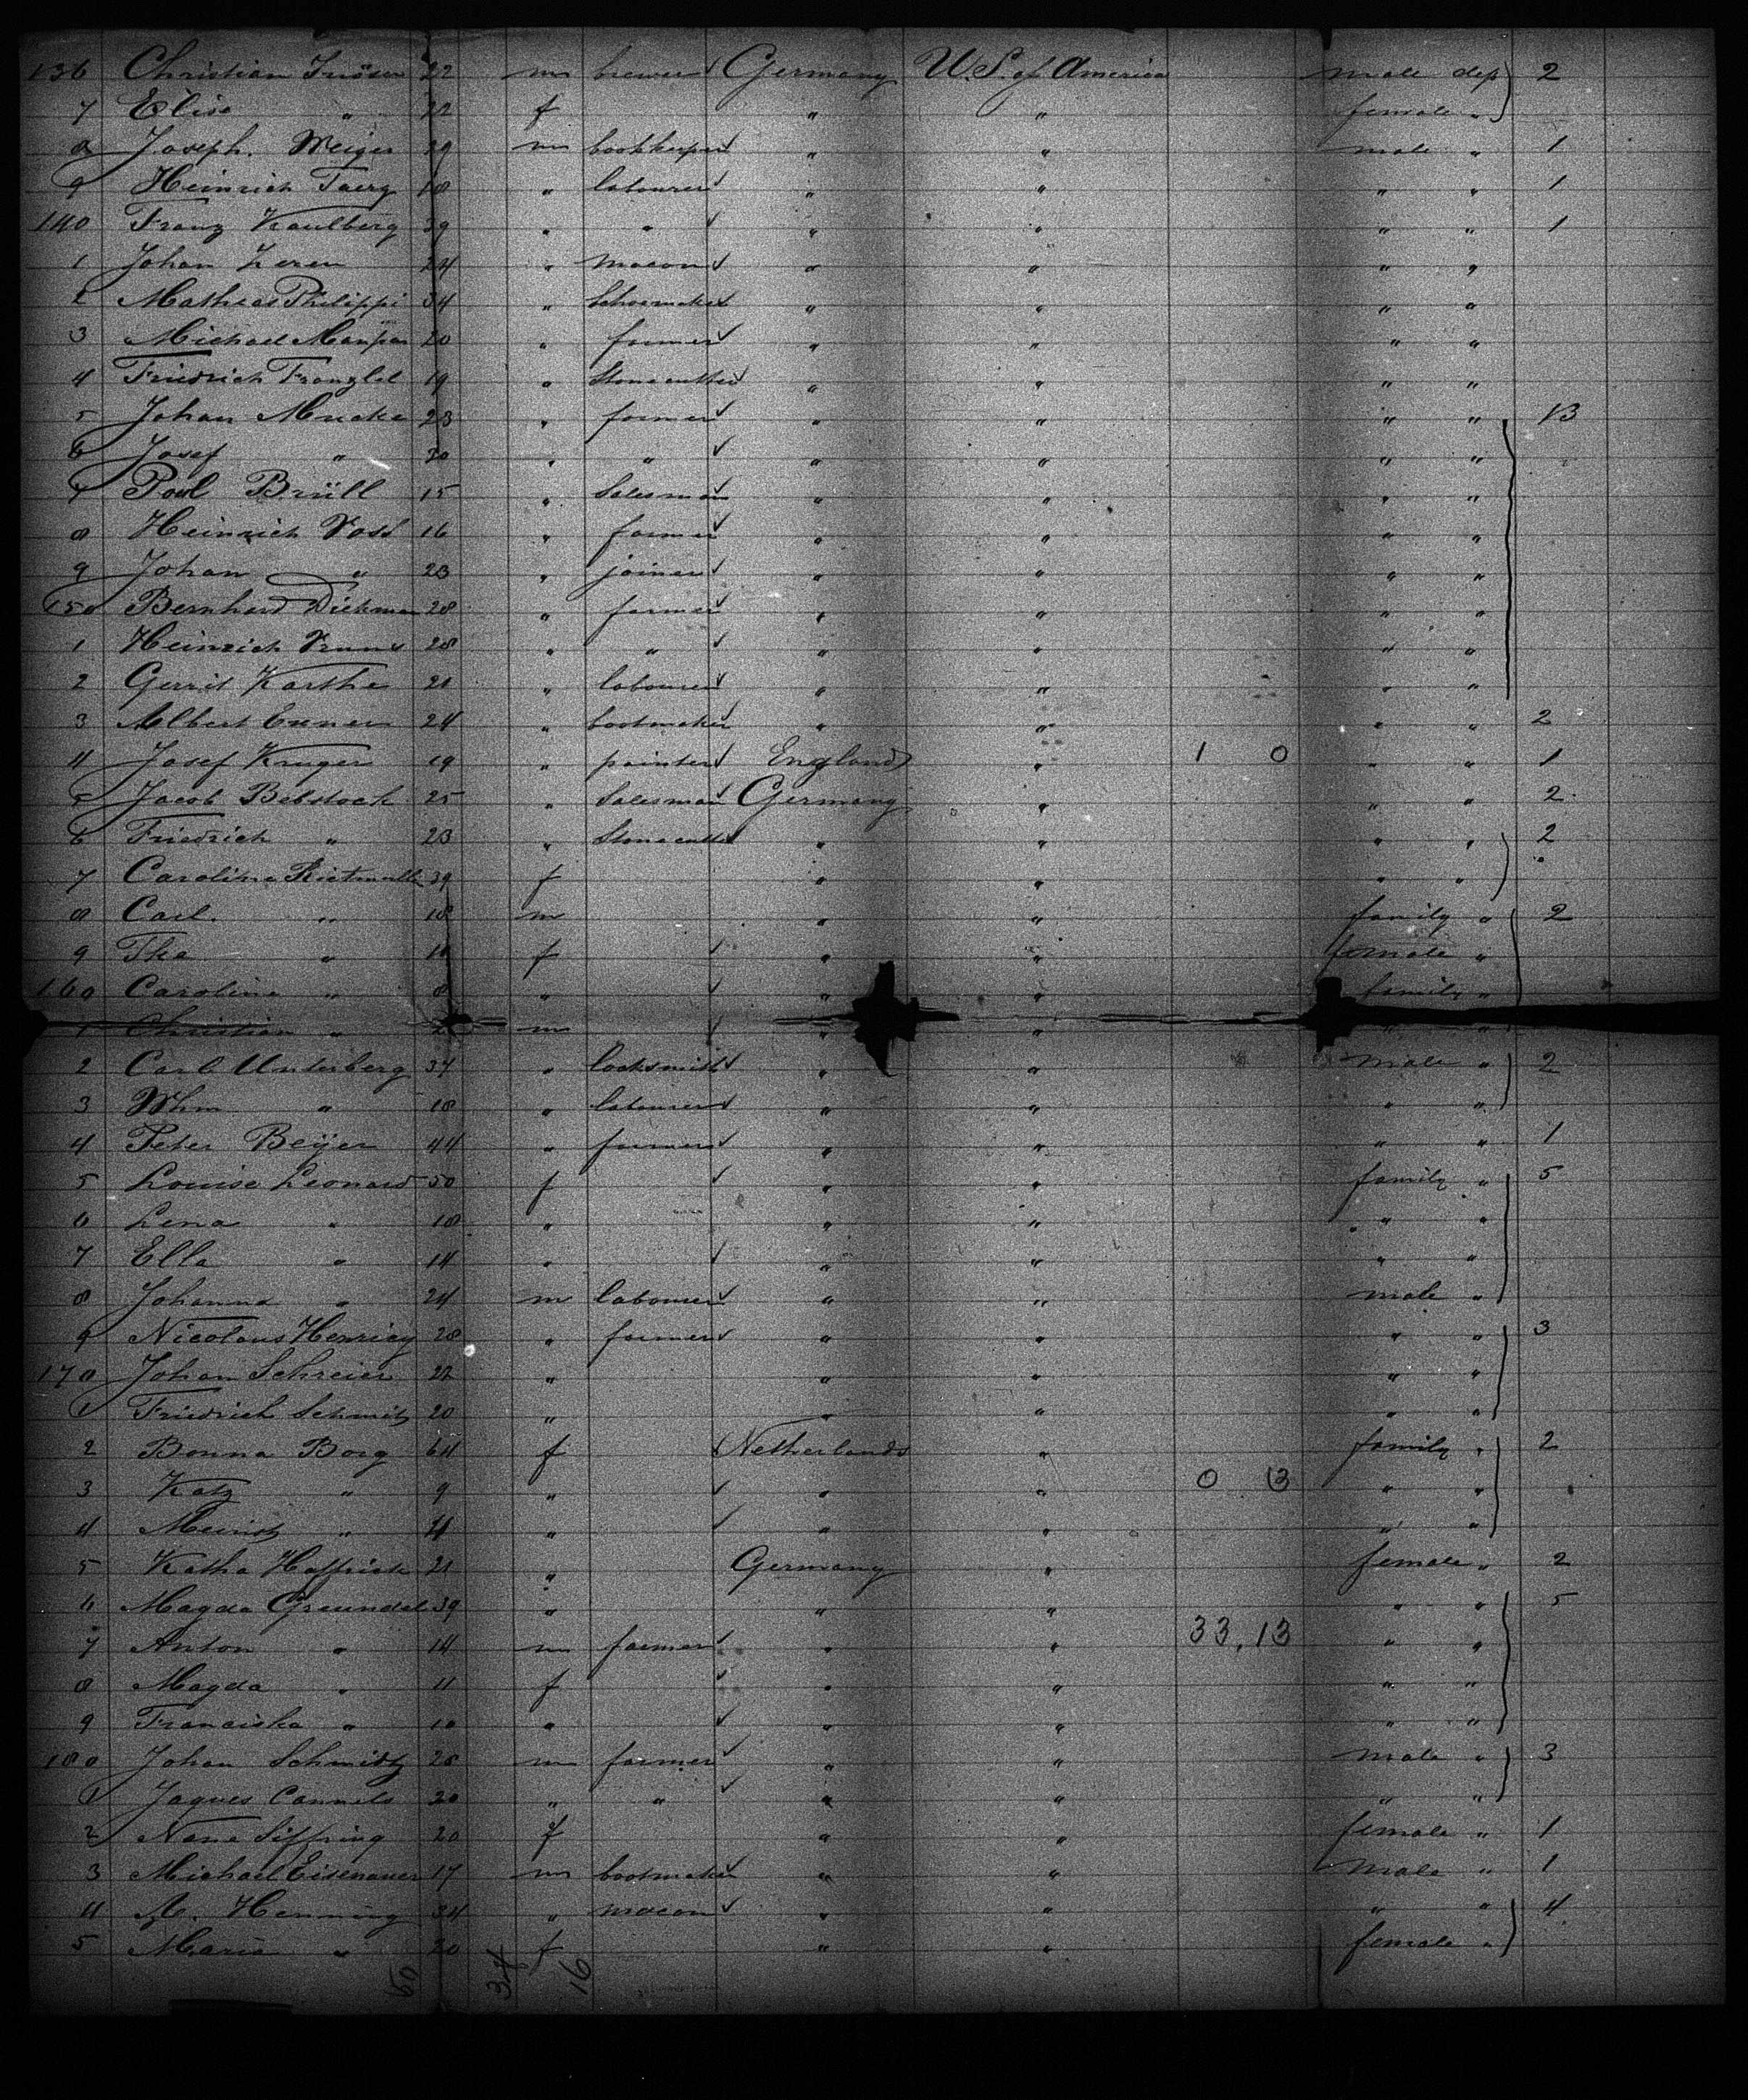 136 Christian 22 m brewer Germany U.S. of America male dep 2
7 Elise " 22 f " " female "
8 Joseph. Meiger 29 m bookkeeper " " male " 1
9 Heinrich Taerg 18 " labourer " " " " 1
140 Franz Kaulberg 39 " " " " " " 1
1 Johan Leren 24 " macon " " " "
2 Mathias Philippi 34 " Schoemaker " " " "
3 Michael 20 " farmer " " " "
4 Friedrich 19 " Stonecutter " " " "
5 Johan Mucke 23 " farmer " " " " 13
6 Josef " 30 " " " " " "
7 Paul Brüll 15 " Salesman " " " "
8 Heinrich Voss 16 " farmer " " " "
9 Johan " 23 " joiner " " " "
150 Bernhard Diekman 28 " farmer " " " "
1 Heinrich 28 " " " " " "
2 Gerrit Karthe 21 " labourer " " " "
3 Albert Exner 24 " bootmaker " " " " 2
4 Josef Kruger 19 " painter England " 1 0 " " 1
5 Jacob Bebstock 25 " Salesman Germany " " " 2
6 Friedrich " 23 " Stonecutter " " " " 2
7 Caroline 39 f " " " "
8 Carl. " 18 m " " family " 2
9 " f " " female "
160 Caroline " 8 " " " family "
1 Christian " m " " " "
2 Carl Unterberg 37 " locksmith " " male " 2
3 Whm " 18 " labourer " " " "
4 Peter Beijer 44 " farmer " " " " 1
5 Louise Leonard 50 f " " family " 5
6 Lena " 18 " " " " "
7 Ella " 14 " " " " "
8 Johanna " 24 m labourer " " male "
9 Nicolaus Henricy 28 " farmer " " " " 3
170 Johan Schreier 22 " " " " "
1 Friedrich Schmitz 20 " " " " "
2 Bonna Borg 64 f Netherlands " family " 2
3 Katz " 9 " " " 0 3 " "
4 " 4 " " " " "
5 Katha 21 " Germany " female " 2
6 Magda Greundel 39 " " " " " 5
7 Anton " 14 m farmer " " 33,13 " "
8 Magda " 11 f " " " "
9 Franciska " 10 " " " " "
180 Johan Schmitz 28 m farmer " " male " 3
1 Jaques Cannels 20 " " " " " "
2 Nane Siffring 20 f " " female " 1
3 Michael Eisenauer 17 m bootmaker " " male " 1
4 M. Henning 34 " macon " " " " 4
5 Maria " 20 f " " female "
50 34 16